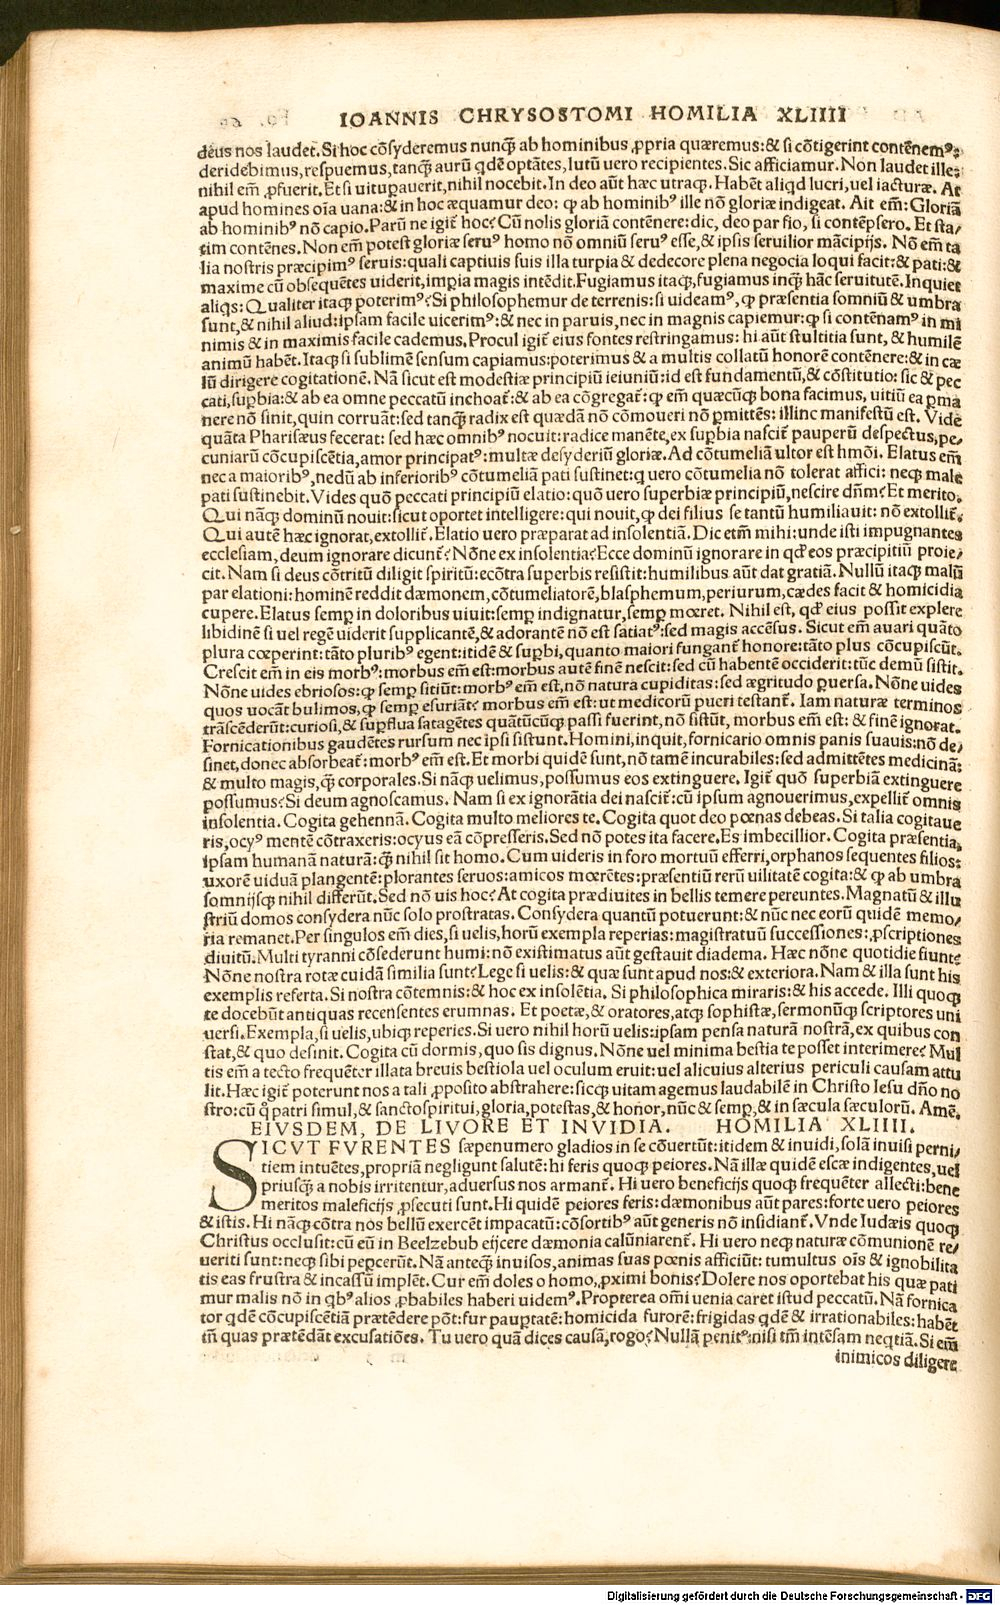 IOANNIS CHRYSOSTOMI HOMILIA XLIIII
deus nos laudet. Si hoc cōsyderemus nunꝗ̃ ab hominibus ꝓpria quæremus: & si cōtigerint contēnemꝰ:
deridebimus, respuemus, tanꝗ̃ aurū ꝗdē optātes, lutū uero recipientes. Sic afficiamur. Non laudet ille:
nihil em̄ ꝓfuerit. Et si uituꝑauerit, nihil nocebit. In deo aūt hæc utraꝗ. Habēt aliꝗd lucri, uel iacturæ. At
apud homines oīa uana: & in hoc æquamur deo: ꝙ ab hominibꝰ ille nō gloriæ indigeat. Ait em̄: Gloriā
ab hominibꝰ nō capio. Parū ne igit̃ hoc? Cū nolis gloriā contēnere: dic, deo par fio, si contēpsero. Et sta/
tim contēnes. Non em̄ potest gloriæ seruꝰ homo nō omniū seruꝰ esse, & ipsis seruilior mācipijs. Nō em̄ ta
lia nostris præcipimꝰ seruis: quali captiuis suis illa turpia & dedecore plena negocia loqui facit: & pati: &
maxime cū obsequētes uiderit, impia magis intēdit. Fugiamus itaꝗ, fugiamus inꝗ̃ hāc seruitutē. Inquiet
aliꝗs: Qualiter itaꝗ poterimꝰ? Si philosophemur de terrenis: si uideamꝰ, ꝙ præsentia somniū & umbra
sunt, & nihil aliud: ipsam facile uicerimꝰ: & nec in paruis, nec in magnis capiemur: ꝙ si contēnamꝰ in mi
nimis & in maximis facile cademus. Procul igit̃ eius fontes restringamus: hi aūt stultitia sunt, & humilē
animū habēt. Itaꝗ si sublimē sensum capiamus: poterimus & a multis collatū honorē contēnere: & in cæ
lū dirigere cogitationē. Nā sicut est modestiæ principiū ieiuniū: id est fundamentū, & cōstitutio: sic & pec
cati, suꝑbia: & ab ea omne peccatū inchoat̃: & ab ea cōgregat̃: ꝙ em̄ quæcūꝗ bona facimus, uitiū ea ꝑma
nere nō sinit, quin corruāt: sed tanꝗ̃ radix est quædā nō cōmoueri nō ꝑmittēs: illinc manifestū est. Vide
quāta Pharisæus fecerat: sed hæc omnibꝰ nocuit: radice manēte, ex suꝑbia nascit̃ pauperū despectus, pe/
cuniarū cōcupiscētia, amor principatꝰ: multæ desyderiū gloriæ. Ad cōtumeliā ultor est hmōi. Elatus em̄
nec a maioribꝰ, nedū ab inferioribꝰ cōtumeliā pati sustinet: ꝗ uero cōtumelia nō tolerat affici: neꝗ male
pati sustinebit. Vides quō peccati principiū elatio: quō uero superbiæ principiū, nescire dñm? Et merito.
Qui nāꝗ dominū nouit: sicut oportet intelligere: qui nouit, ꝙ dei filius se tantū humiliauit: nō extollit̃.
Qui autē hæc ignorat, extollit̃. Elatio uero præparat ad insolentiā. Dic etm̄ mihi: unde isti impugnantes
ecclesiam, deum ignorare dicunt̃? Nōne ex insolentia? Ecce dominū ignorare in qđ eos præcipitiū proie/
cit. Nam si deus cōtritū diligit spiritū: ecōtra superbis resistit: humilibus aūt dat gratiā. Nullū itaꝗ malū
par elationi: hominē reddit dæmonem, cōtumeliatorē, blasphemum, periurum, cædes facit & homicidia
cupere. Elatus semꝑ in doloribus uiuit: semꝑ indignatur, semꝑ mœret. Nihil est, qđ eius possit explere
libidinē si uel regē uiderit supplicantē, & adorantē nō est satiatꝰ: sed magis accēsus. Sicut em̄ auari quāto
plura cœperint: tāto pluribꝰ egent: itidē & suꝑbi, quanto maiori fungant̃ honore: tāto plus cōcupiscūt.
Crescit em̄ in eis morbꝰ: morbus em̄ est: morbus autē finē nescit: sed cū habentē occiderit: tūc demū sistit.
Nōne uides ebriosos: ꝙ semꝑ sitiūt: morbꝰ em̄ est, nō natura cupiditas: sed ægritudo ꝑuersa. Nōne uides
quos uocāt bulimos, ꝙ semꝑ esuriāt? morbus em̄ est: ut medicorū pueri testant̃. Iam naturæ terminos
trāscēderūt: curiosi, & suꝑflua satagētes quātūcūꝗ passi fuerint, nō sistūt, morbus em̄ est: & finē ignorat.
Fornicationibus gaudētes rursum nec ipsi sistunt. Homini, inquit, fornicario omnis panis suauis: nō de/
sinet, donec absorbeat̃: morbꝰ em̄ est. Et morbi quidē sunt, nō tamē incurabiles: sed admittētes medicinā:
& multo magis, ꝗ̃ corporales. Si nāꝗ uelimus, possumus eos extinguere. Igit̃ quō superbiā extinguere
possumus? Si deum agnoscamus. Nam si ex ignorātia dei nascit̃: cū ipsum agnouerimus, expellit̃ omnis
insolentia. Cogita gehennā. Cogita multo meliores te. Cogita quot deo pœnas debeas. Si talia cogitaue
ris, ocyꝰ mentē cōtraxeris: ocyus eā cōpresseris. Sed nō potes ita facere. Es imbecillior. Cogita præsentia,
ipsam humanā naturā: ꝗ̃ nihil sit homo. Cum uideris in foro mortuū efferri, orphanos sequentes filios:
uxorē uiduā plangentē: plorantes seruos: amicos mœrētes: præsentiū rerū uilitatē cogita: & ꝙ ab umbra
somnijsꝗ nihil differūt. Sed nō uis hoc? At cogita prædiuites in bellis temere pereuntes. Magnatū & illu
striū domos consydera nūc solo prostratas. Consydera quantū potuerunt: & nūc nec eorū quidē memo/
ria remanet. Per singulos em̄ dies, si uelis, horū exempla reperias: magistratuū successiones: ꝓscriptiones
diuitū. Multi tyranni cōsederunt humi: nō existimatus aūt gestauit diadema. Hæc nōne quotidie fiunt?
Nōne nostra rotæ cuidā similia sunt? Lege si uelis: & quæ sunt apud nos: & exteriora. Nam & illa sunt his
exemplis referta. Si nostra cōtemnis: & hoc ex insolētia. Si philosophica miraris: & his accede. Illi quoꝗ
te docebūt antiquas recensentes erumnas. Et poetæ, & oratores, atꝗ sophistæ, sermonūꝗ scriptores uni
uersi. Exempla, si uelis, ubiꝗ reperies. Si uero nihil horū uelis: ipsam pensa naturā nostrā, ex quibus con
stat, & quo desinit. Cogita cū dormis, quo sis dignus. Nōne uel minima bestia te posset interimere? Mul
tis em̄ a tecto frequēter illata breuis bestiola uel oculum eruit: uel alicuius alterius periculi causam attu
lit. Hæc igit̃ poterunt nos a tali ꝓposito abstrahere: sicꝗ uitam agemus laudabilē in Christo Iesu dño no
stro: cū ꝗ patri simul, & sanctospiritui, gloria, potestas, & honor, nūc & semꝑ, & in sæcula sæculorū. Amē.
EIVSDEM, DE LIVORE ET INVIDIA. HOMILIA XLIIII.
SICVT FVRENTES sæpenumero gladios in se cōuertūt: itidem & inuidi, solā inuisi perni/
tiem intuētes, propriā negligunt salutē: hi feris quoꝗ peiores. Nā illæ quidē escæ indigentes, uel
priusꝗ̃ a nobis irritentur, aduersus nos armant̃. Hi uero beneficijs quoꝗ frequēter allecti: bene
meritos maleficijs ꝓsecuti sunt. Hi quidē peiores feris: dæmonibus aūt pares: forte uero peiores
& istis. Hi nāꝗ cōtra nos bellū exercēt impacatū: cōsortibꝰ aūt generis nō insidiant̃. Vnde Iudæis quoꝗ
Christus occlusit: cū eū in Beelzebub eijcere dæmonia calūniarent̃. Hi uero neꝗ naturæ cōmunionē re/
ueriti sunt: neꝗ sibi peꝑcerūt. Nā anteꝗ̃ inuisos, animas suas pœnis afficiūt: tumultus oīs & ignobilita
tis eas frustra & incassū implēt. Cur em̄ doles o homo, ꝓximi bonis? Dolere nos oportebat his quæ pati
mur malis nō in ꝗbꝰ alios ꝓbabiles haberi uidemꝰ. Propterea om̄i uenia caret istud peccatū. Nā fornica
tor ꝗdē cōcupiscētiā prætēdere pōt: fur pauꝑtatē: homicida furorē: frigidas ꝗdē & irrationabiles: habēt
tñ quas prætēdāt excusatiōes. Tu uero quā dices causā, rogo? Nullā penitꝰ: nisi tm̄ intēsam neꝗtiā. Si em̄
inimicos diligere
Digitalisierung gefördert durch die Deutsche Forschungsgemeinschaft · DFG